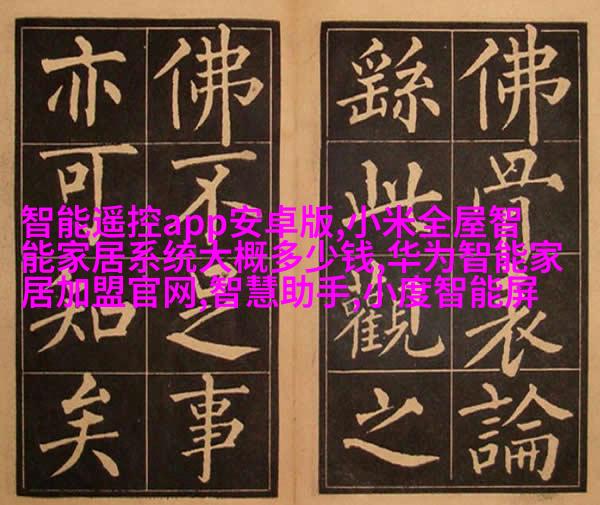 佛骨表論
繇此觀之
佛不足事
亦可知矣
智能遥控app安卓版,小米全屋智
能家居系统大概多少钱,华为智能家
居加盟官网,智慧助手,小度智能屏